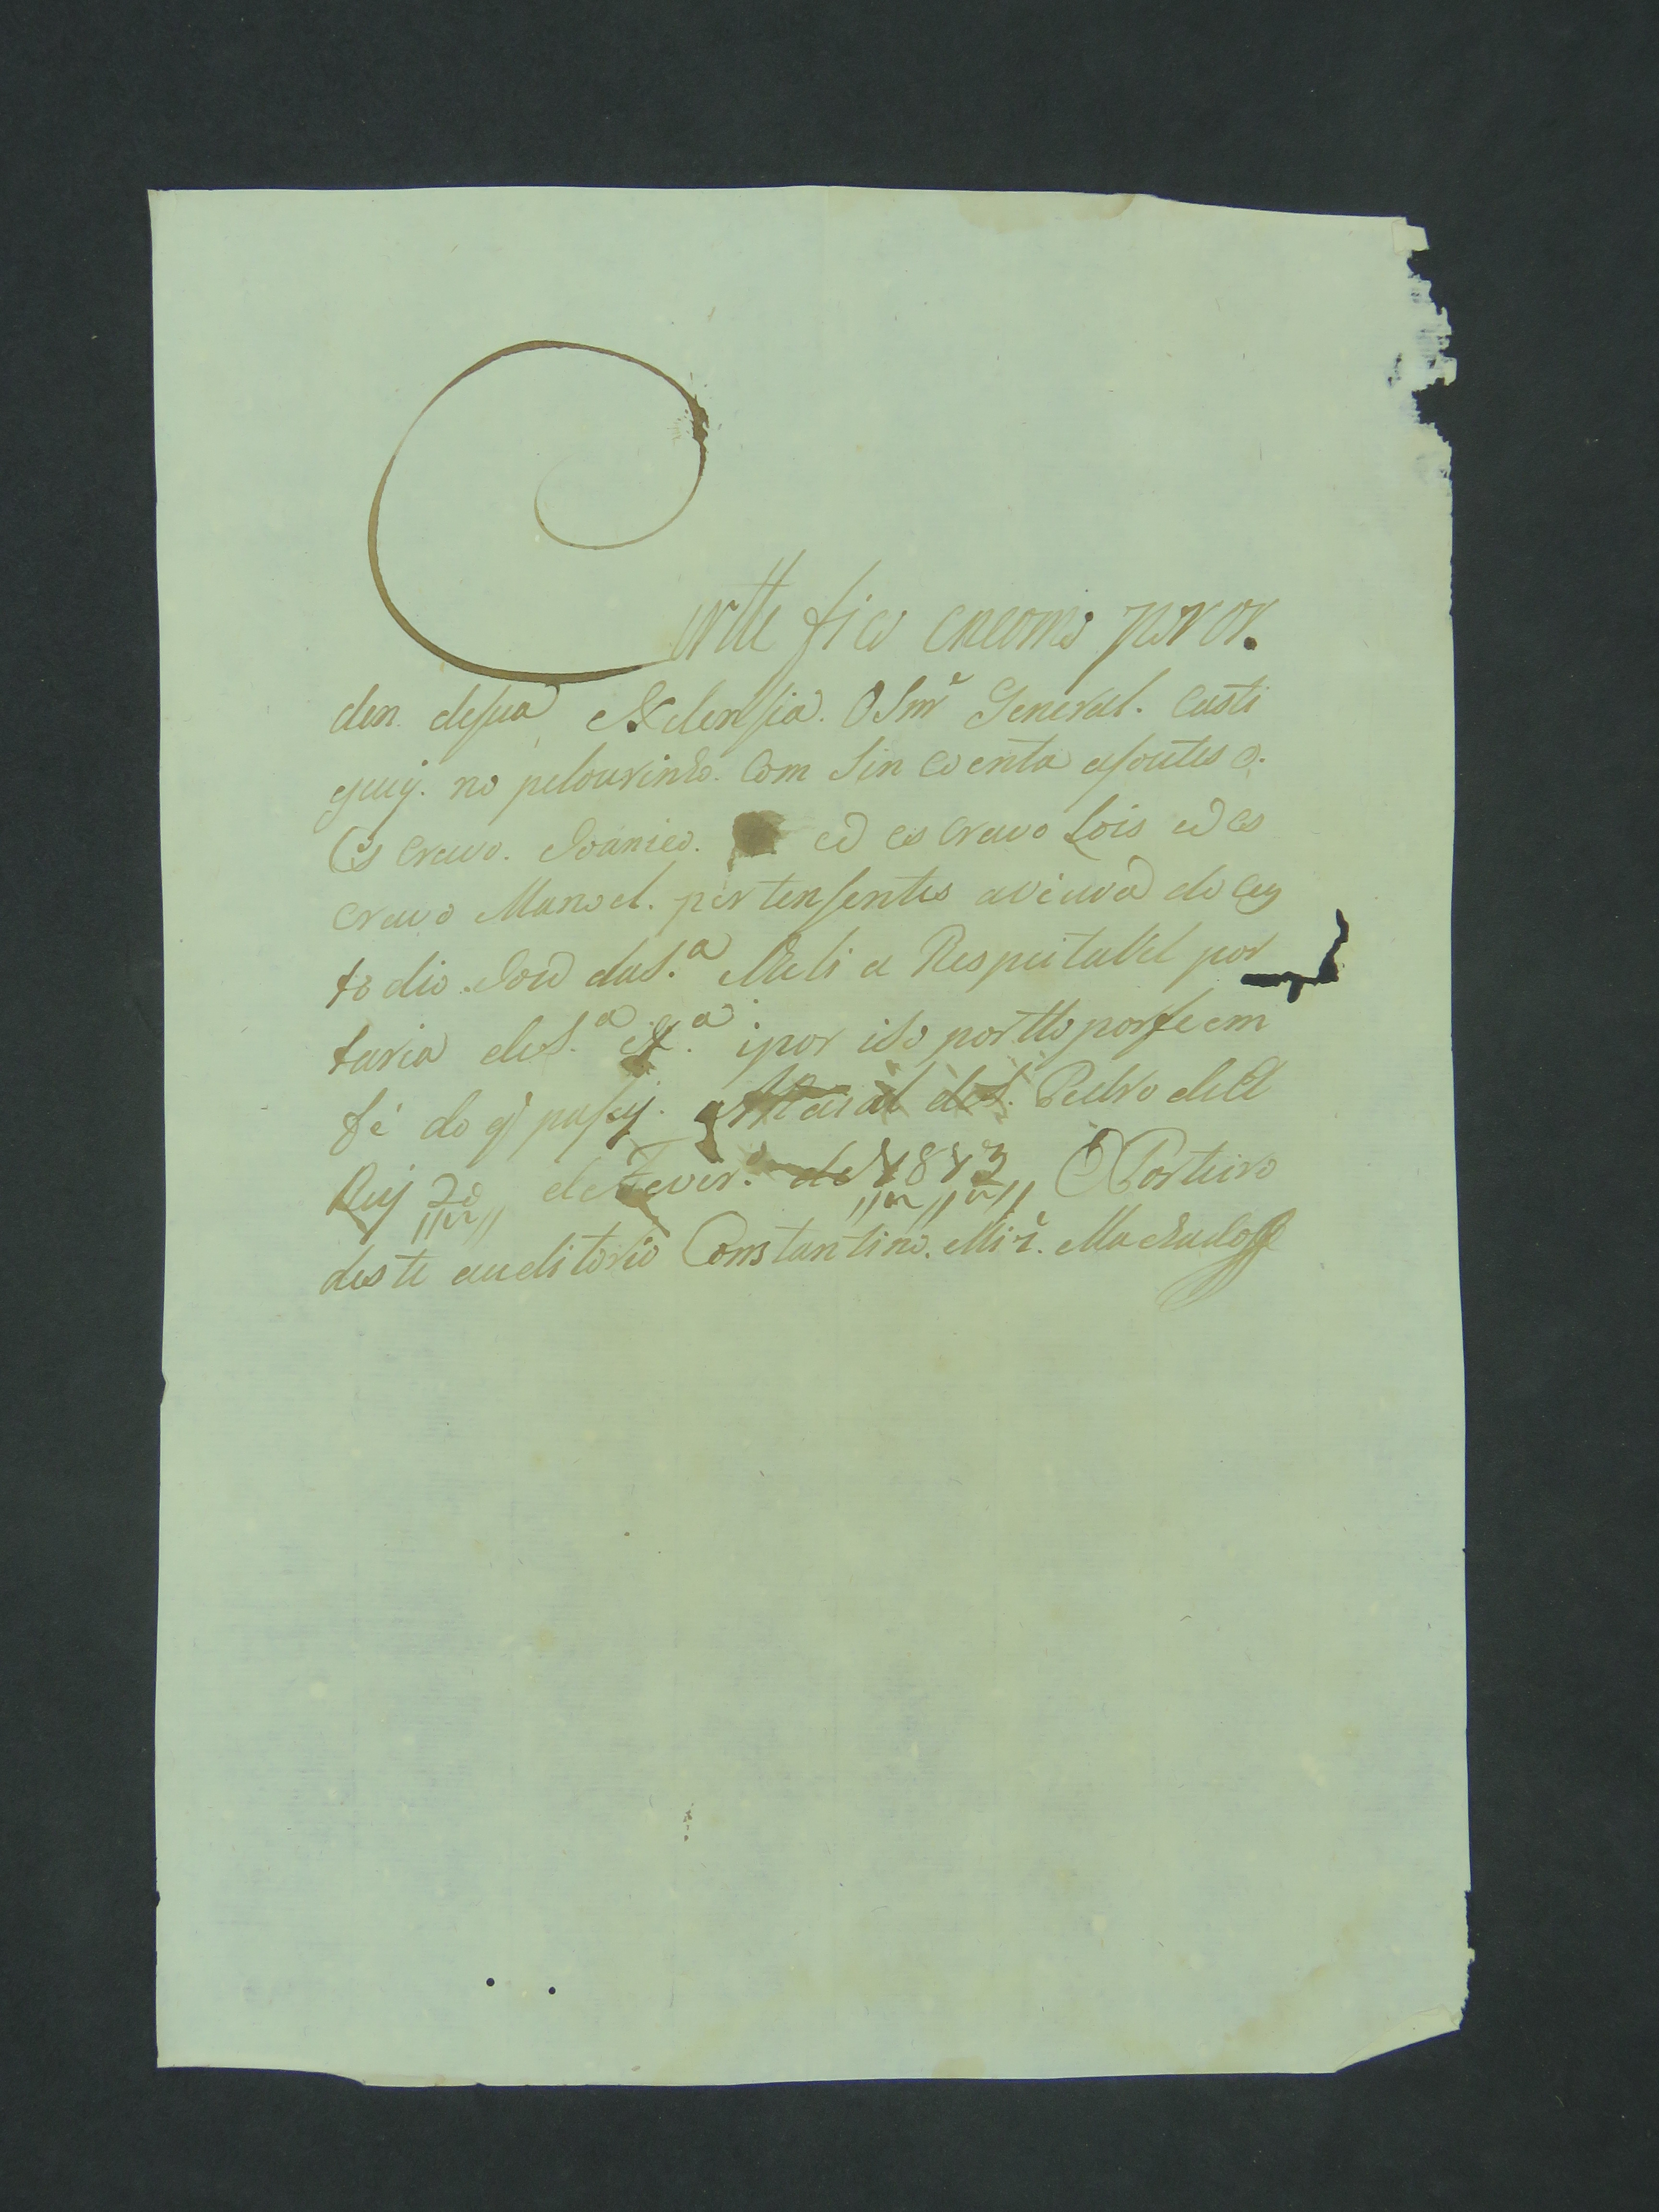 Certtefico encomo por or.
den desua Exelensia. O Snr̃ General. Casti
guij. no pelourinho. Com Sin coenta asoutes o.
Es cravo. Joanico. eo es cravo Lois eo es
cravo Manoel. pertensentes aviuva do Cus
todio João da S.ª a Respeitavel por
taria de S.ª Ex.ª ipor iso portto porfe em
fé do q̃ pasej. Arraial de S. Pedro delEl
Rej 20 de Fever.º de 1813 O Porteiro
deste auditorio Constantino. Machado